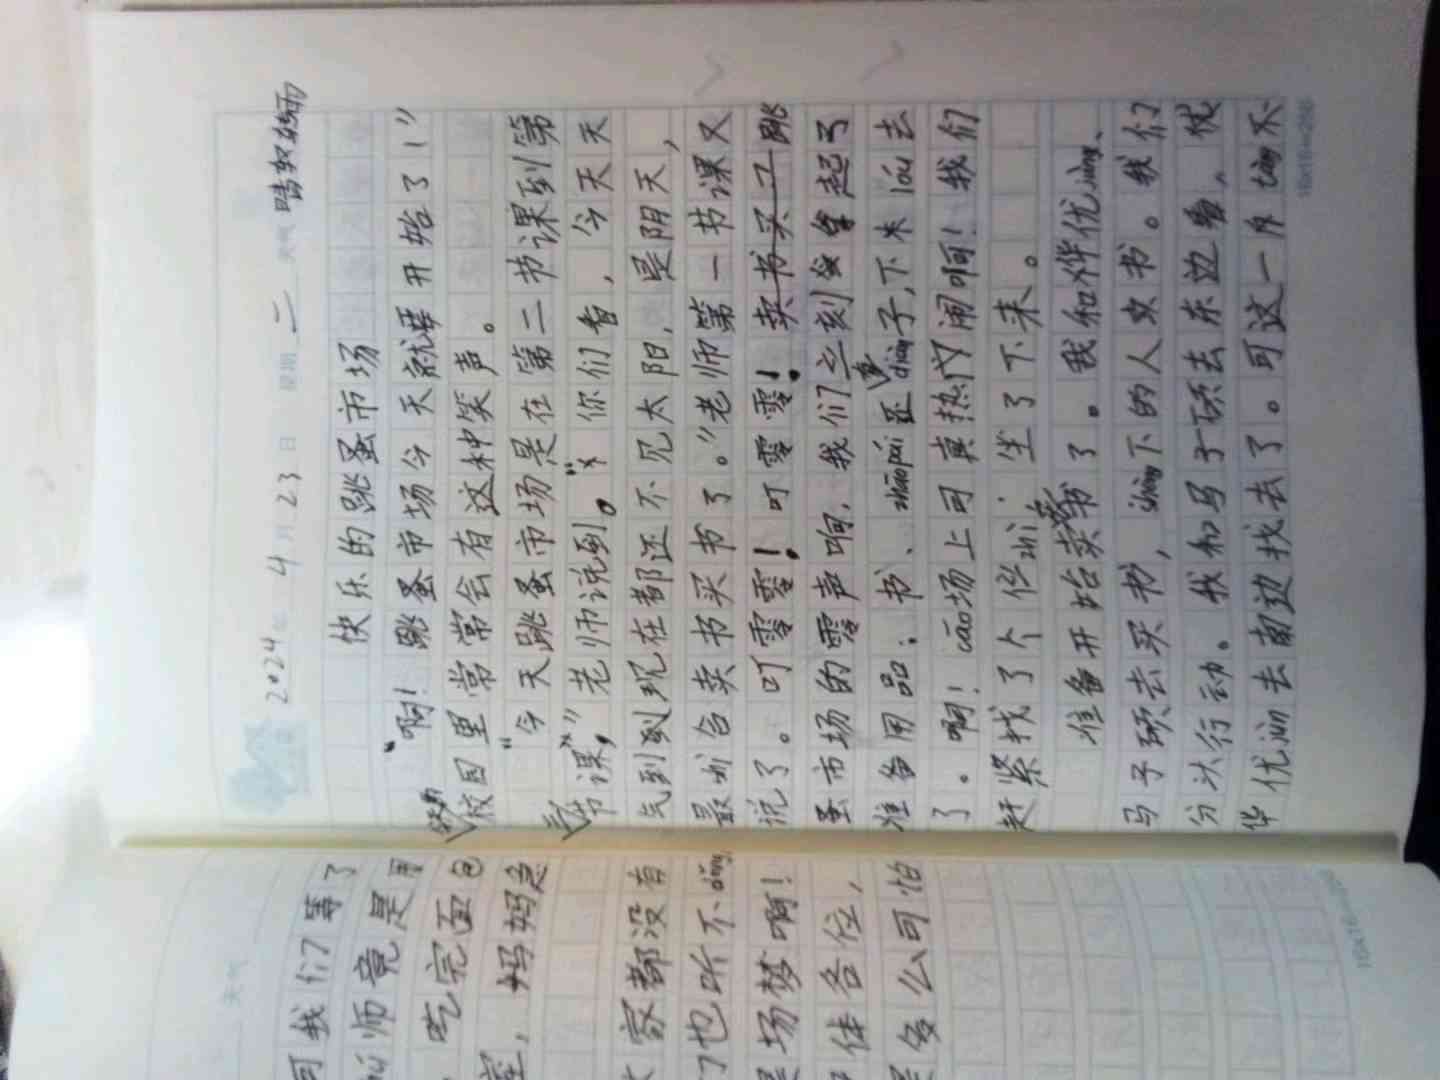 2024年 4月23日 星期二 天气
快乐的跳蚤市场
“啊！跳蚤市场今天就要开始了！”
校园里常常会有这种笑声。
“今天跳蚤市场是在第二节课到第
节课，”老师说到。“你们看，今天天
气到到现在都还不见太阳，是阴天，
最合卖书买书了。”老师第一节课又
说了。叮零零！叮零零！卖书买了跳
蚤市场的零声响，我们立刻拿起了
准备用品：书、zhāo pái还diàn子，下来lóu去
了。啊！cāo场上可真热闹啊！我们
赶紧找了个位zhi，坐了下来。
准备开始卖书了。我和烨优、
马子硕去买书，shèng下的人卖书。我们
分头行动。我和马子硕去东边看，优
烨优去南边找去了。可这一片
可我们等了
师竟是
吃完面包
，妈妈急
大家都没有
们也听不dǒng，
是场梦啊！
体各位，
是多么可怕